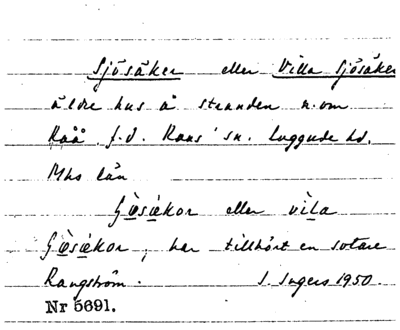 Sjösåker eller Villa Sjösåker
äldre hus å stranden n. om
Råå f.d. Raus' sn. Luggude hd.
Mhs län
eller vila
, har tillhört en sotare
Rangström. I. Ingers 1950.
Nr 5691.